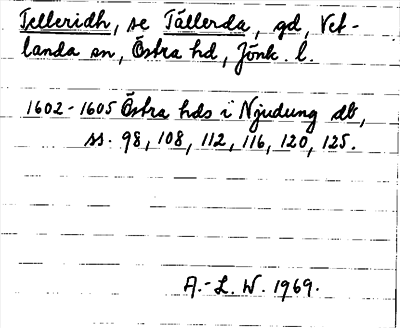 Telleridh, se Tällerda, gd, Vet-
landa sn, Östra hd, Jönk. l.
1602-1605 Östra hds i Njudung db,
ss. 98, 108, 112, 116, 120, 125.
A.-L. W. 1969.